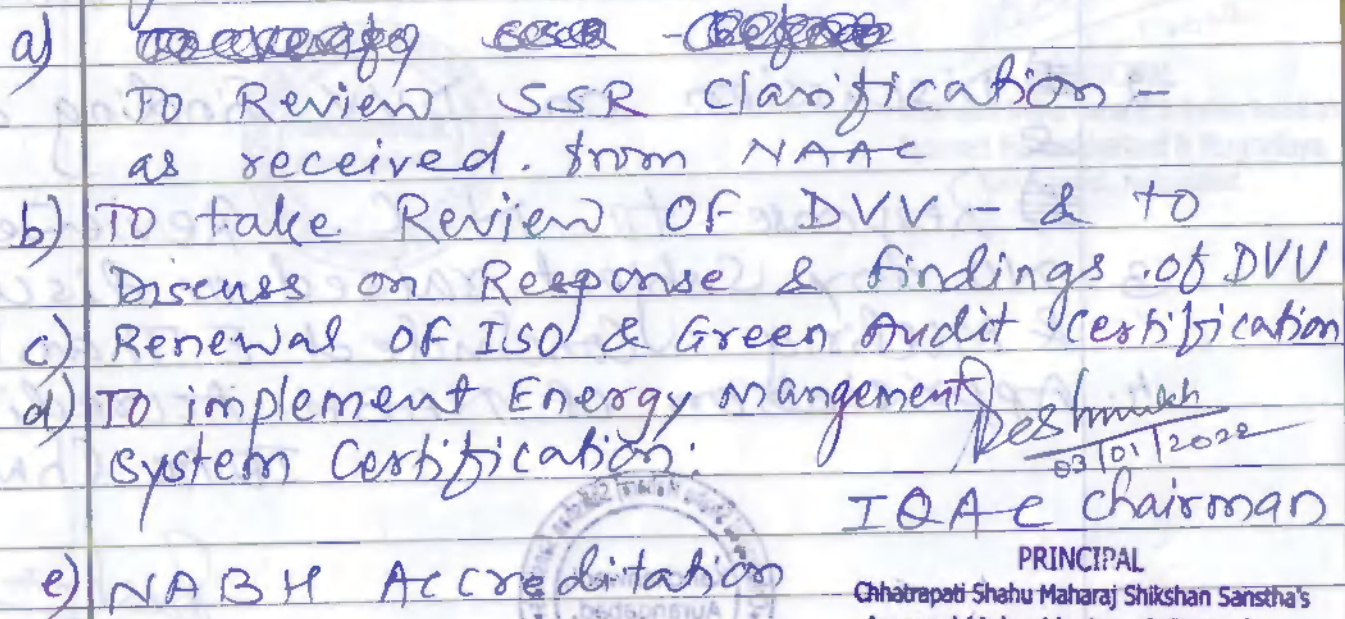 a)
To Review SSR Clarification -
as received. from NAAC
b) To take Review OF DVV - & to
Discuss on Response & findings of DVV
c) Renewal OF ISO & Green Audit Certification
d) TO implement Energy Mangement
system Certification.
Deshmukh
03/01/2022
IQAC Chairman
e) NABH Accreditation
PRINCIPAL
Chhatrapati Shahu Maharaj Shikshan Sanstha's